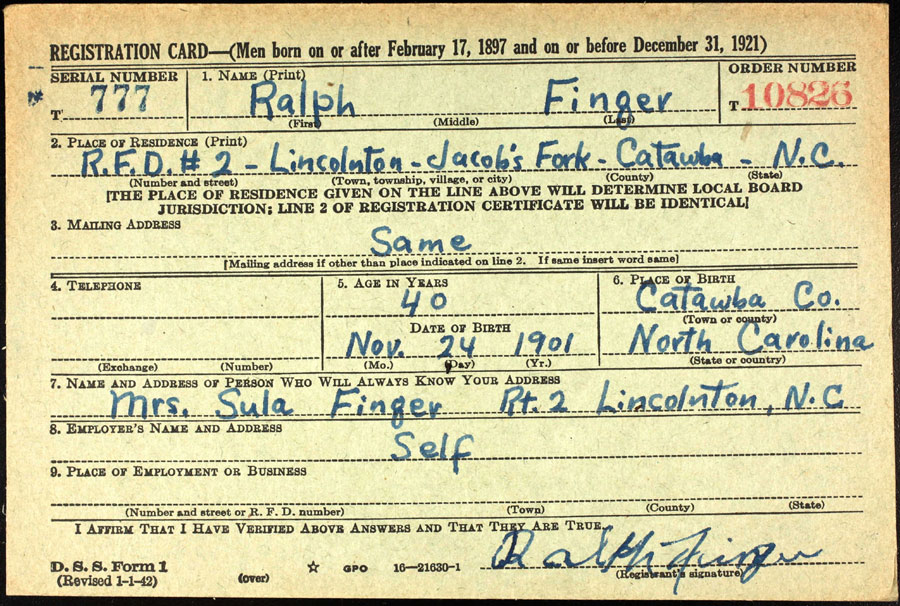 REGISTRATION CARD—(Men born on or after February 17, 1897 and on or before December 31, 1921)
SERIAL NUMBER 1. NAME (Print) ORDER NUMBER
T 777 Ralph Finger T 10826
(First) (Middle) (Last)
2. PLACE OF RESIDENCE (Print)
R.F.D. # 2 - Lincolnton - Jacob's Fork - Catawba - N.C.
(Number and street) (Town, township, village, or city) (County) (State)
[THE PLACE OF RESIDENCE GIVEN ON THE LINE ABOVE WILL DETERMINE LOCAL BOARD
JURISDICTION; LINE 2 OF REGISTRATION CERTIFICATE WILL BE IDENTICAL]
3. MAILING ADDRESS
Same
[Mailing address if other than place indicated on line 2. If same insert word same]
4. TELEPHONE 5. AGE IN YEARS 6. PLACE OF BIRTH
40 Catawba Co.
DATE OF BIRTH (Town or county)
Nov. 24 1901 North Carolina
(Exchange) (Number) (Mo.) (Day) (Yr.) (State or country)
7. NAME AND ADDRESS OF PERSON WHO WILL ALWAYS KNOW YOUR ADDRESS
Mrs. Sula Finger Rt. 2 Lincolnton, N.C
8. EMPLOYER'S NAME AND ADDRESS
Self
9. PLACE OF EMPLOYMENT OR BUSINESS
(Number and street or R. F. D. number) (Town) (County) (State)
I AFFIRM THAT I HAVE VERIFIED ABOVE ANSWERS AND THAT THEY ARE TRUE.
Ralph Finger
D. S. S. Form 1
(Revised 1-1-42) (over) ☆ GPO 16—21630-1 (Registrant's signature)